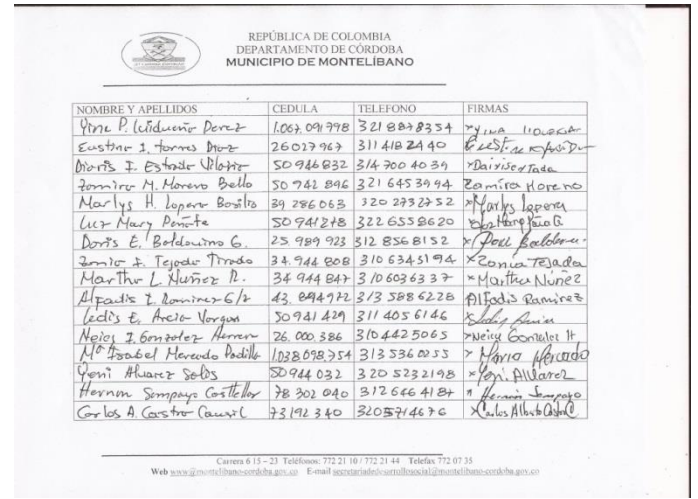 REPÚBLICA DE COLOMBIA
DEPARTAMENTO DE CÓRDOBA
MUNICIPIO DE MONTELÍBANO
NOMBRE Y APELLIDOS CEDULA TELEFONO FIRMAS
Yina P. Perez 1.067.091798 3218878354 Yina
Eustino I. torres Diaz 26027967 3114182440
Diaris I. Estrada 50946832 3147004039
Zamira M. Moreno Bello 50942896 3216453994 Zamira Moreno
Marlys H. Lopera Bosilio 39286063 3202732752 Marlys Lopera
Luz Mary Peñate 50941278 3226558620 Luz Mary
Doris E. Baldovino G. 25.989923 3128568152
Zonia I. Tejada Tirado 34.944808 3106345194 Zonia Tejada
Martha L. Nuñez R. 34944847 3106036337 Martha Nuñez
Alfadis I. Ramirez 43. 3135886228 Alfadis Ramirez
Ledis E. Arcia Vargas 50941429 3114056146
Neicy I. Gonzalez Herrera 26.000.386 3104425065 Neicy Gonzalez H
Mª Isabel Mercado Padilla 1.038.098.754 3135360255 Maria Mercado
Yeni Alvarez Salas 50944032 3205232198 Yeni. Alvarez
Hernan Sampayo 78302040 3126464187 Hernan Sampayo
Carlos A. Castro Causil 73192340 3205714676 Carlos Alberto Castro C
Carrera 6 15 – 23 Teléfonos: 772 21 10 / 772 21 44 Telefax 772 07 35
Web www@montelibano-cordoba.gov.co E-mail secretariadedesarrollosocial@montelibano-cordoba.gov.co